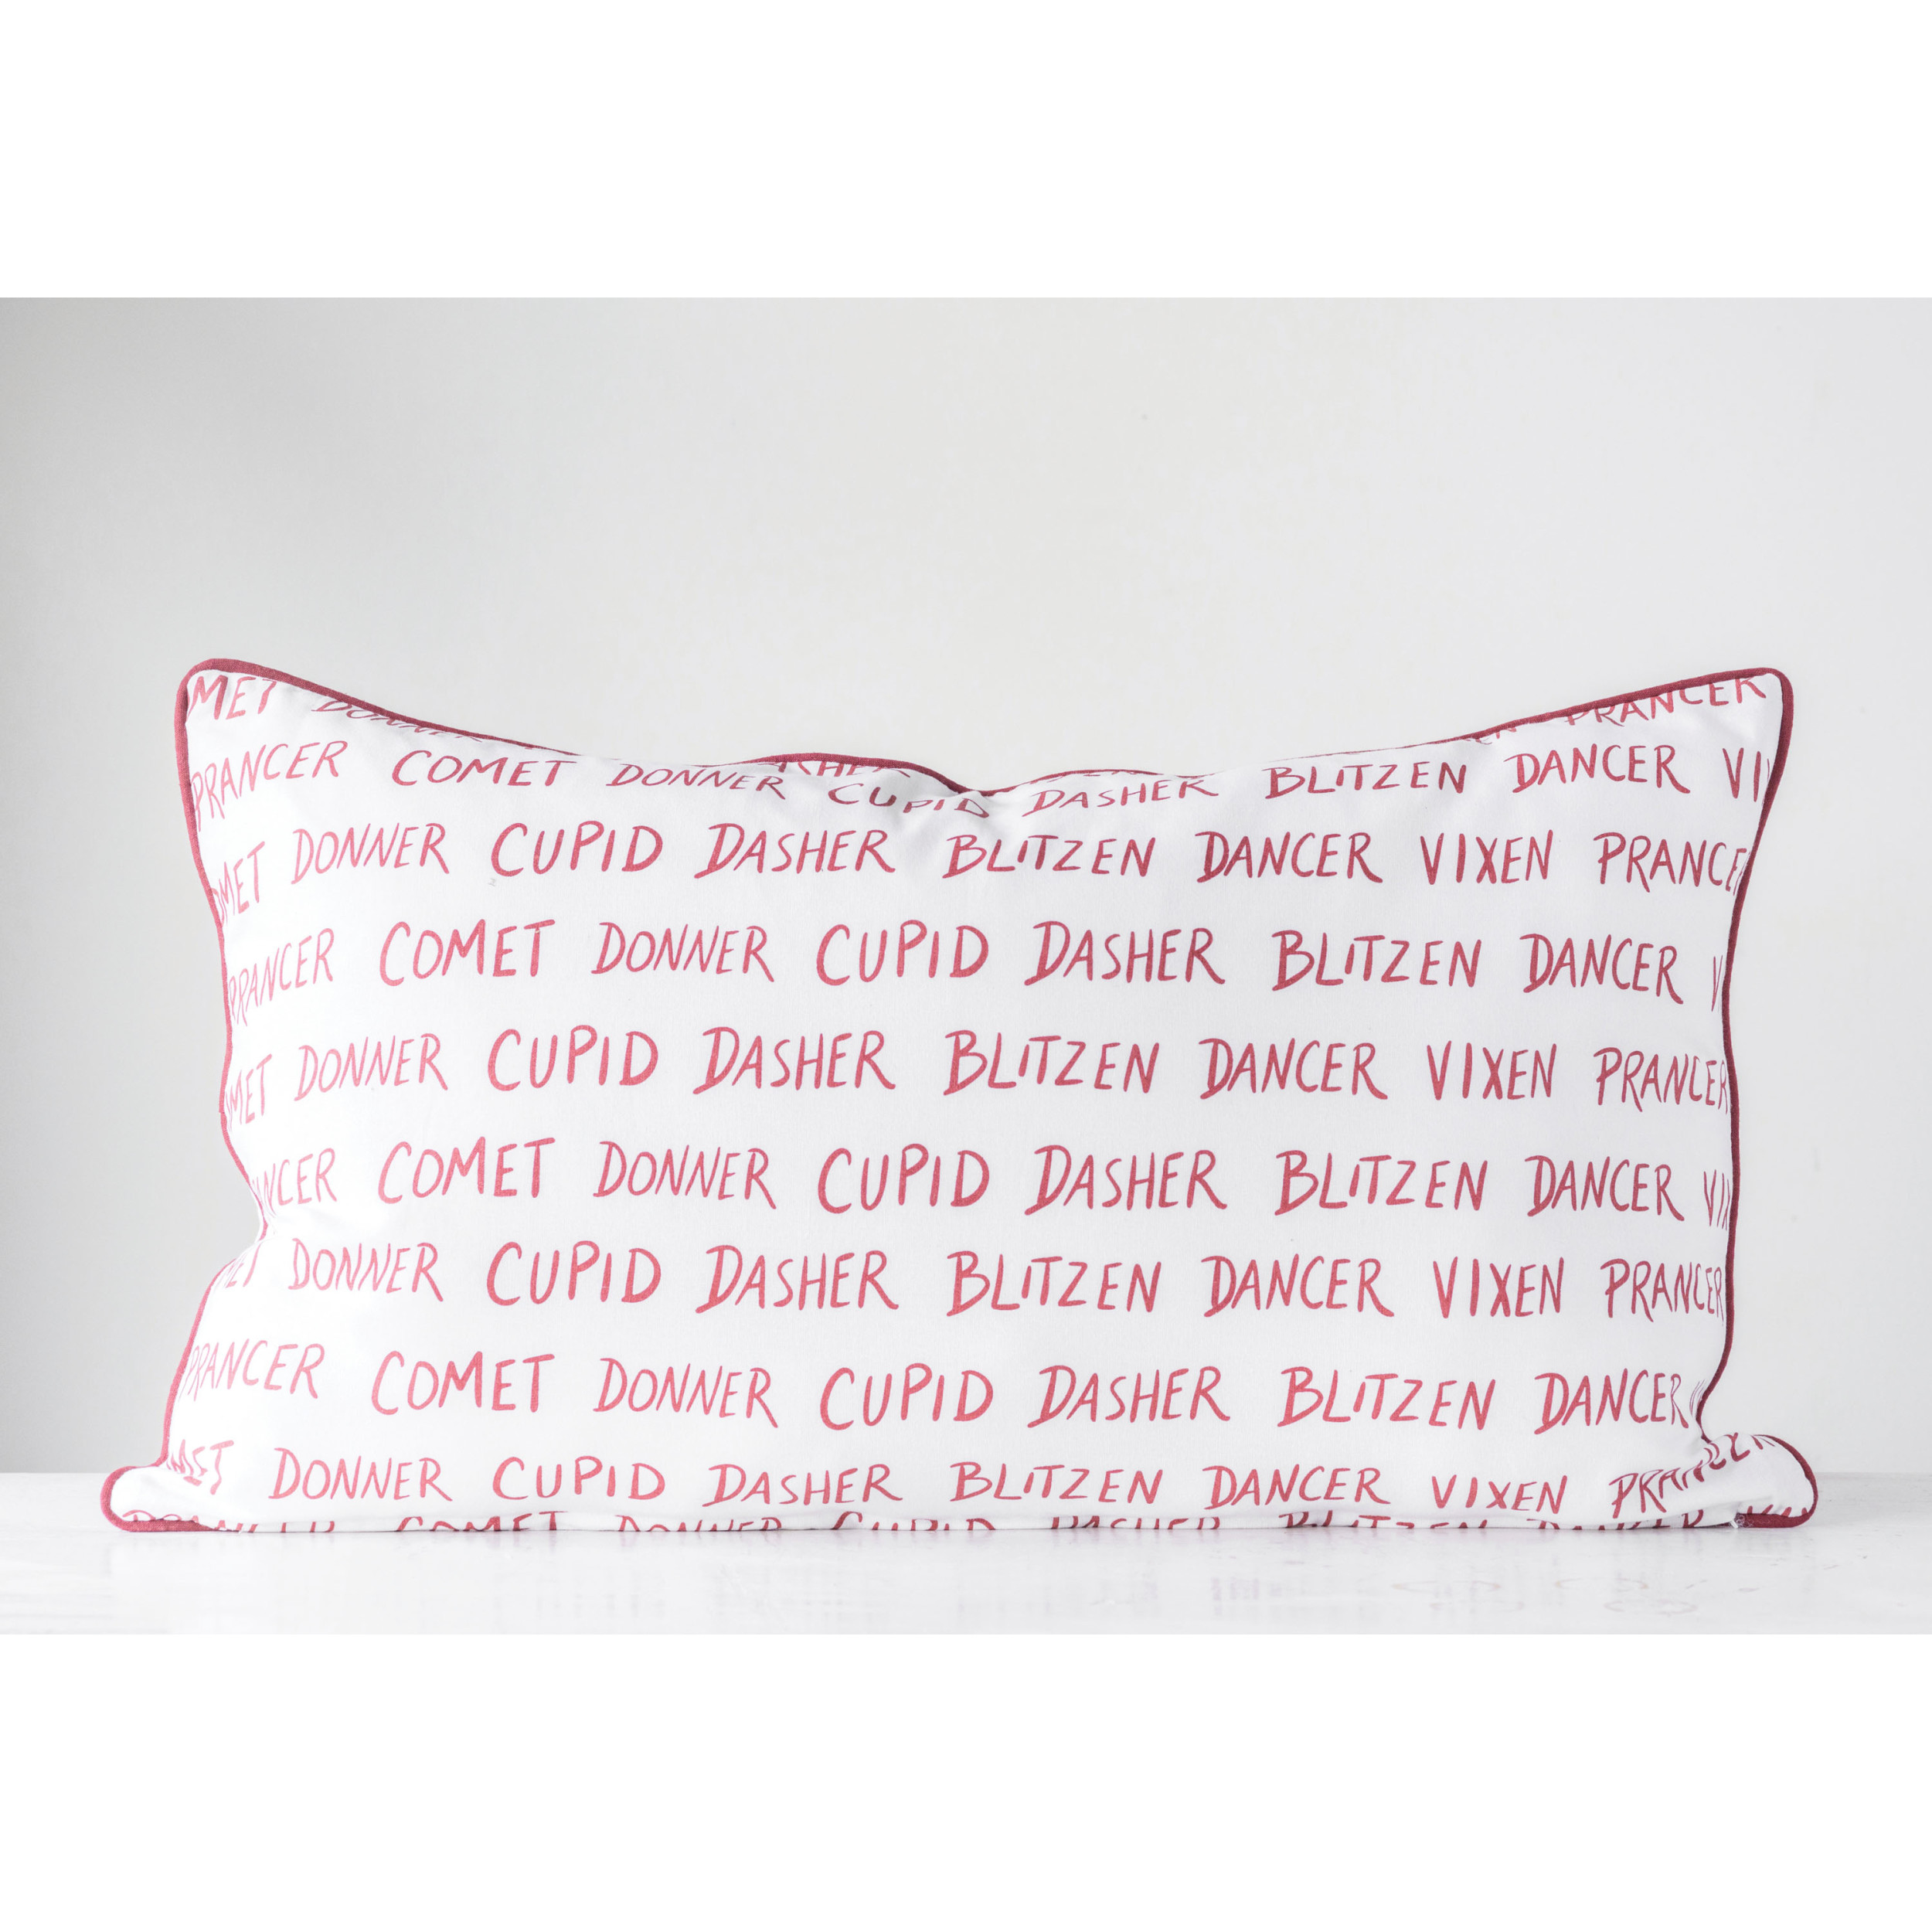 DONNER PRANCER
PRANCER COMET DONNER CUPID DASHER BLITZEN DANCER
DONNER CUPID DASHER BLITZEN DANCER VIXEN PRANCER
PRANCER COMET DONNER CUPID DASHER BLITZEN DANCER
DONNER CUPID DASHER BLITZEN DANCER VIXEN PRANCER
COMET DONNER CUPID DASHER BLITZEN DANCER
DONNER CUPID DASHER BLITZEN DANCER VIXEN PRANCER
PRANCER COMET DONNER CUPID DASHER BLITZEN DANCER
DONNER CUPID DASHER BLITZEN DANCER VIXEN
COMET DONNER CUPID DASHER BLITZEN DANCER